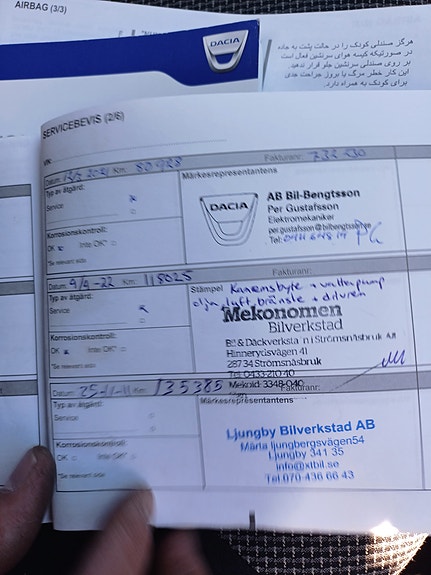 AIRBAG (3/3)
DACIA
هرگز صندلی کودک را در حالت پشت به جاده
در صورتیکه کیسه هوای سرنشین فعال است
بر روی صندلی سرنشین جلو قرار ندهید.
این کار خطر مرگ یا بروز جراحت جدی
برای کودک به همراه دارد.
SERVICEBEVIS (2/6)
VIN:
Datum Km: 80928 Fakturanr:
Typ av åtgärd:
Service x
Korrosionskontroll:
OK Inte OK*
*Se relevant sida
Märkesrepresentantens
DACIA
AB Bil-Bengtsson
Per Gustafsson
Elektromekaniker
per.gustafsson@bilbengtsson.se
Tel:
Datum 9/4-22 Km: 118025 Fakturanr:
Typ av åtgärd:
Service x
Korrosionskontroll:
OK x Inte OK*
*Se relevant sida
Stämpel Kamremsbyte + vattenpump
olja luft bränsle +
Mekonomen
Bilverkstad
Bil & Däckverkstan i Strömsnäsbruk AB
Hinnerydsvägen 41
287 34 Strömsnäsbruk
Tel. 0433-210 40
Mekoid 3348-040
Datum Km: 135385 Fakturanr:
Typ av åtgärd:
Service
Korrosionskontroll:
OK Inte OK*
*Se relevant sida
Märkesrepresentantens
Ljungby Bilverkstad AB
Märta ljungbergsvägen54
Ljungby 341 35
info@xlbil.se
Tel 070 436 66 43